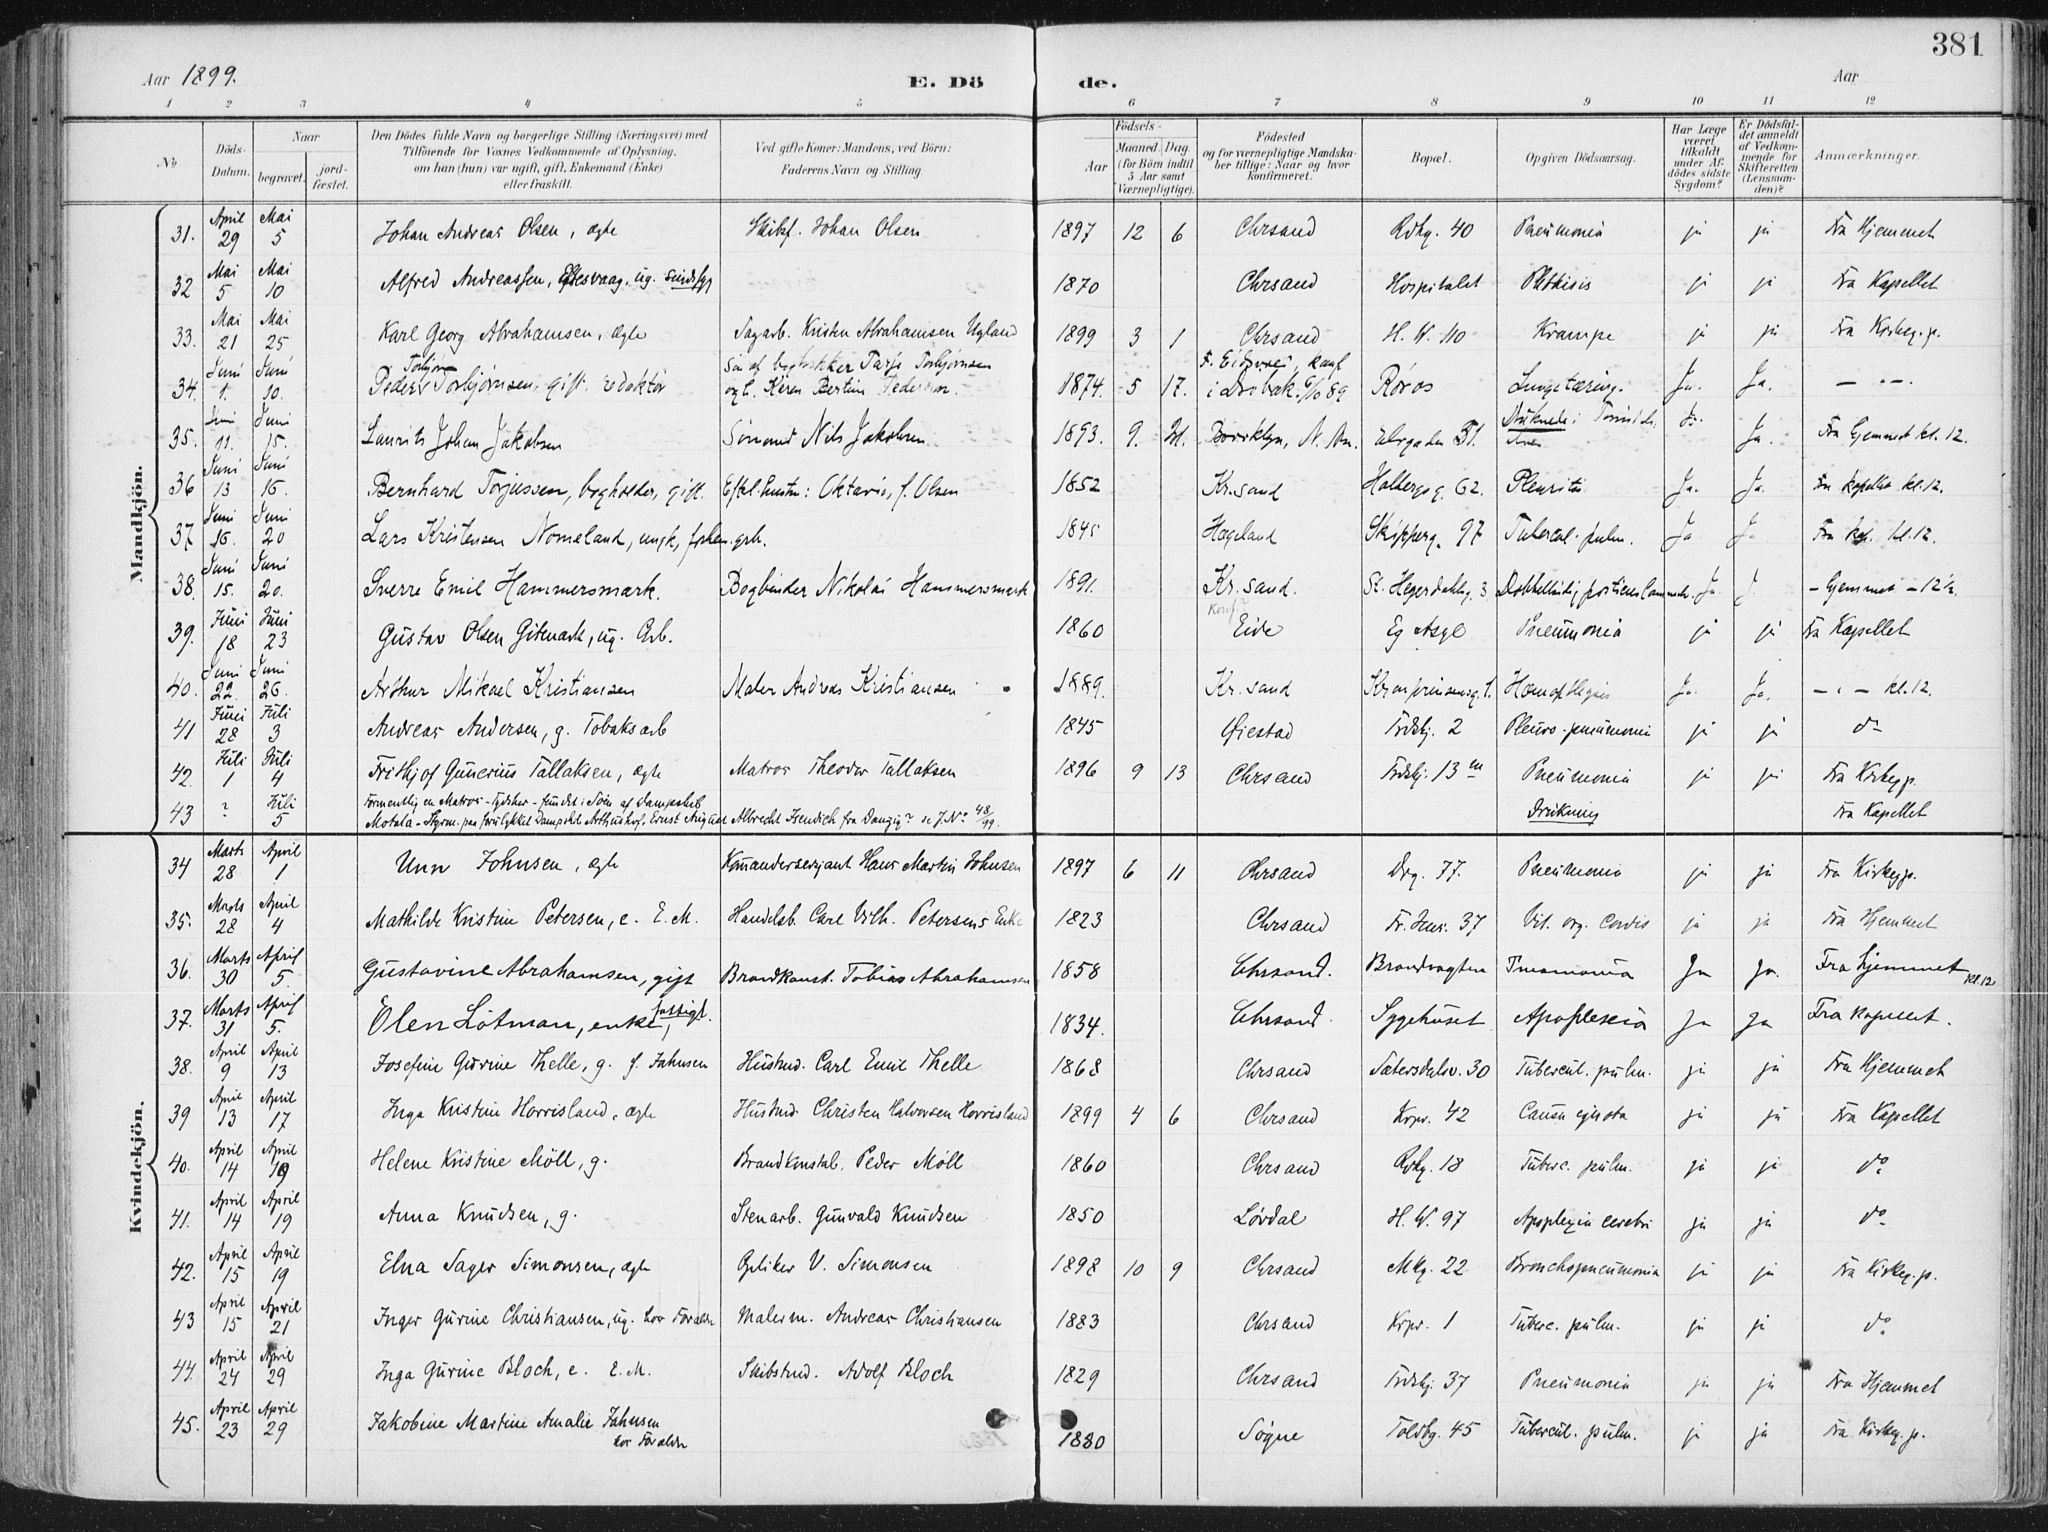 381
Aar 1899.
E. Dö de.
Aar
1 2 3 4 5 6 7 8 9 10 11 12
No
Döds-Datum.
Naar begravet. jordfæstet.
Den Dödes fulde Navn og borgerlige Stilling (Næringsvei) med Tilföiende for Voxnes Vedkommende af Oplysning, om han (hun) var ugift, gift, Enkemand (Enke) eller fraskilt.
Ved gifte Koner: Mandens, ved Börn: Faderens Navn og Stilling.
Födsels-
Aar Maaned. Dag. (for Börn indtil 5 Aar samt Værnepligtige).
Födested og for værnepligtige Mandskaber tillige: Naar og hvor konfirmeret.
Bopæl.
Opgiven Dödsaarsag.
Har Læge været tilkaldt under Afdödes sidste Sygdom?
Er Dödsfaldet anmeldt af Vedkommende for Skifteretten (Lensmanden)?
Anmærkninger.
Mandkjön.
31. April 29 Mai 5 Johan Andreas Olsen, ægte Skibsf. Johan Olsen 1897 12 6 Chrsand Rdhg. 40 Pneumonia ja ja Fra Hjemmet
32 Mai 5 Mai 10 Alfred Andreassen, ug. 1870 Chrsand Hospitalet Phthisis ja ja Fra Kapellet
33. Mai 21 Mai 25 Karl Georg Abrahamsen, ægte Sagarb. Kristen Abrahamsen Ugland 1899 3 1 Chrsand H. W. 110 Krampe ja ja Fra Kirkeg.p.
34. Juni 1. Juni 10. Peder Torbjørn Torbjørnsen, gift. redaktör Søn af bogtrykker Tarje Torbjørnsen og h. Karen Bertine Pedersen. 1874. 5 17. F. Eidsvol, konf. i Drøbak 6/10 89 Röros Lungetæring. Ja. Ja. – " –.
35. Juni 11. Juni 15. Laurits Johan Jakobsen Sömand Nils Jakobsen 1893. 9. 21. Brooklyn, N. Am. Elvegaden 31. Druknede i Ja. Fra Hjemmet kl. 12.
36 Juni 13 Juni 16. Bernhard Torjussen, bogholder, gift. Eftl. hustru: Oktavia, f. Olsen 1852 Kr.sand Holbergsg. 62. Pleuritis Ja. Ja. Fra kapellet kl. 12.
37 Juni 16. Juni 20 Lars Kristensen Nomeland, ungk, forhen. grb. 1845 Hægeland Skipperg. 97 Tubercul. pulm. Ja Ja Fra kap. kl. 12.
38. Juni 15. Juni 20. Sverre Emil Hammersmark. Bogbinder Nikolai Hammersmark 1891. Kr.sand. St. Hegerdahlsg. 3 Dobbeltsidig Ja. J – Hjemmet – 12½.
39. Juni 18 Juni 23 Gustav Olsen Gitmark, ug. Arb. 1860 Konf? Eide Eg Asyl Pneumonia ja ja Fra Kapellet
40. Juni 22. Juni 26. Arthur Mikael Kristiansen Maler Andreas Kristiansen 1889. Kr.sand Kronprinsensg. 1. Hæmoptysis Ja. Ja. – " – kl. 12.
41 Juni 28 Juli 3 Andreas Andersen, g. Tobaksarb 1845 Øiestad Frdskj. 2 Pleuro-pneumonia ja ja do
42. Juli 1 Juli 4 Frithjof Gunerius Tallaksen, ægte Matros Theodor Tallaksen 1896 9 13 Chrsand Frdskj. 13 m Pneumonia ja ja Fra Kirkegp.
43 ? Juli 5 Formentlig en Matros – tydsker – fundet i Søen af Dampskib Motala – Styrm. paa forulykket Dampskib Arthushof, Ernst August Albrecht Frendich fra Danzig? se J.No 48/99. Drukning Fra Kapellet
Kvindekjön.
34 Marts 28 April 1 Unn Johnsen, ægte Kommandersergiant Hans Martin Johnsen 1897 6 11 Chrsand Drg. 77. Pneumonia ja ja Fra Kirkegp.
35. Marts 28 April 4 Mathilde Kristine Petersen, e. E. M. Handelsb. Carl Vilh. Petersens Enke 1823 Chrsand Fr. Hens. 37 Vit. org. cordis ja ja Fra Hjemmet
36. Marts 30 April 5. Gustavine Abrahamsen, gift Brandkonst. Tobias Abrahamsen 1858 Chrsand. Brandvagten Pneumonia Ja Ja. Fra hjemmet kl. 12
37. Marts 31 April 5. Olen Lötman, enke, fattigl. 1834. Chrsand. Sygehuset Apoplexia Ja Ja Fra kapellet.
38. April 9 April 13 Josefine Gurine Thelle, g. f. Jahnsen Hustmd. Carl Emil Thelle 1868 Chrsand Sætersdalsv. 30 Tubercul. pulm. ja ja Fra Hjemmet
39 April 13 April 17 Inga Kristine Horrisland, ægte Hustmd. Christen Halvorsen Horrisland 1899 4 6 Chrsand Krpr. 42 Causa ignota ja ja Fra Kapellet
40. April 14 April 19 Helene Kristine Möll, g. Brandkonstab. Peder Möll 1860 Chrsand Rdhg. 18 Tuberc. pulm. ja ja do
41. April 14 April 19 Anna Knudsen, g. Stenarb. Gunvald Knudsen 1850 Lövdal H. W. 97 Apoplexia cerebri ja ja do
42. April 15 April 19 Elna Sager Simonsen, ægte Optiker V. Simonsen 1898 10 9 Chrsand Mkg. 22 Bronchopneumonia ja ja Fra Kirkeg.p.
43 April 15 April 21 Inger Gurine Christiansen, ug. hos Foræld. Malerm. Andreas Christiansen 1883 Chrsand Krpr. 1 Tuberc. pulm. ja ja do
44. April 24 April 29 Inga Gurine Bloch, e. E. M. Skibstmd. Adolf Bloch 1829 Chrsand Frdskj. 37 Pneumonia ja ja Fra Hjemmet
45. April 23 April 29 Jakobine Martine Amalie Jahnsen hos Forældre 1880 Søgne Toldbg. 45 Tubercul. pulm. ja ja Fra Kirkeg.p.